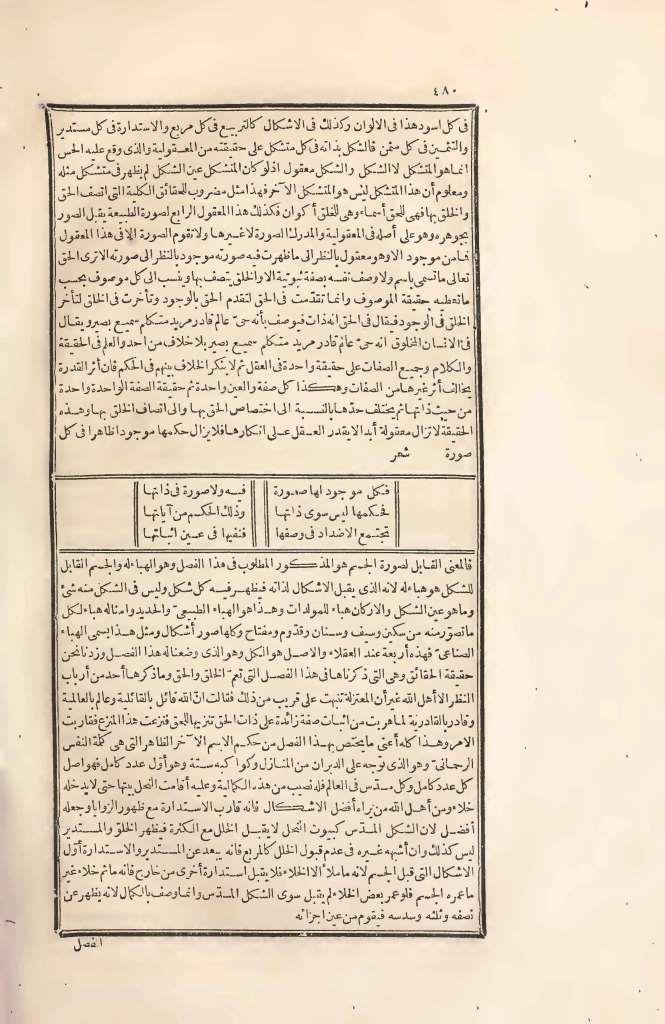 ٤٨٠
فى كل اسود هذا فى الالوان وكذلك فى الاشكال كالتربيع فى كل مربع والاستدارة فى كل مستدير
والتثمين فى كل مثمن فالشكل بذاته فى كل متشكل على حقيقته من المعقولية والذى وقع عليه الحس
انما هو المتشكل لا الشكل والشكل معقول اذ لو كان المتشكل عين الشكل لم يظهر فى متشكل مثله
ومعلوم أن هذا المتشكل ليس هو المتشكل الآخر فهذا مثل مضروب للحقائق الكلية التى اتصف الحق
والخلق بها فهى للحق أسماء وهى للخلق أكوان فكذلك هذا المعقول الرابع لصورة الطبيعة يقبل الصور
بجوهره وهو على أصله فى المعقولية والمدرك الصورة لا غيرها ولا تقوم الصورة الا فى هذا المعقول
فما من موجود الا وهو معقول بالنظر الى ما ظهرت فيه صورته موجود بالنظر الى صورته الا ترى الحق
تعالى ما تسمى باسم ولا وصف نفسه بصفة ثبوتية الا والخلق يتصف بها وينسب الى كل موصوف بحسب
ما تعطيه حقيقة الموصوف وانما تقدّمت فى الحق لتقدم الحق بالوجود وتأخرت فى الخلق لتأخر
الخلق فى الوجود فيقال فى الحق انه ذات فيوصف بأنه حىّ عالم قادر مريد متكلم سميع بصير ويقال
فى الانسان المخلوق انه حىّ عالم قادر مريد متكلم سميع بصير بلا خلاف من احد والعلم فى الحقيقة
والكلام وجميع الصفات على حقيقة واحدة فى العقل ثم لا ينكر الخلاف بينهم فى الحكم فان أثر القدرة
يخالف أثر غيرها من الصفات وهكذا كل صفة والعين واحدة ثم حقيقة الصفة الواحدة واحدة
من حيث ذاتها ثم يختلف حدّها بالنسبة الى اختصاص الحق بها والى اتصاف الخلق بها وهذه
الحقيقة لا تزال معقولة أبدا لا يقدر العقل على انكارها فلا يزال حكمها موجودا ظاهرا فى كل
صورة شعر
فكل موجود لها صورة فيه ولا صورة فى ذاتها
فحكمها ليس سوى ذاتها وذلك الحكم من آياتها
تجتمع الاضداد فى وصفها فنفيها فى عين اثباتها
فالمعنى القابل لصورة الجسم هو المذكور المطلوب فى هذا الفصل وهو الهباء له والجسم القابل
للشكل هو هباء له لانه الذى يقبل الاشكال لذاته فيظهر فيه كل شكل وليس فى الشكل منه شئ
وما هو عين الشكل والاركان هباء للمولدات وهذا هو الهباء الطبيعىّ والحديد وامثاله هباء لكل
ما تصوّر منه من سكين وسيف وسنان وقدّوم ومفتاح وكلها صور أشكال ومثل هذا يسمى الهباء
الصناعىّ فهذه أربعة عند العقلاء والاصل هو الكل وهو الذى وضعنا له هذا الفصل وزدنا نحن
حقيقة الحقائق وهى التى ذكرناها فى هذا الفصل التى تعمّ الخلق والحق وما ذكرها أحد من أرباب
النظر الا أهل الله غير أن المعتزلة تنبهت على قريب من ذلك فقالت انّ الله قائل بالقائلية وعالم بالعالمية
وقادر بالقادرية لما هربت من اثبات صفة زائدة على ذات الحق تنزيها للحق فنزعت هذا المنزع فقاربت
الامر وهذا كله أعنى ما يختص بهذا الفصل من حكم الاسم الآخر الظاهر التى هى كلمة النفس
الرحمانىّ وهو الذى توجه على الدبران من المنازل وكواكبه ستة وهو أوّل عدد كامل فهو اصل
كل عدد كامل وكل مسدّس فى العالم فله نصيب من هذه الكمالية وعليه أقامت النحل بيتها حتى لا يدخله
خلاء ومن أهل الله من يراه أفضل الاشكال فانه قارب الاستدارة مع ظهور الزوايا وجعله
أفضل لان الشكل المسدّس كبيوت النحل لا يقبل الخلل مع الكثرة فيظهر الخلق والمستدير
ليس كذلك وان أشبهه غيره فى عدم قبول الخلل كالمربع فانه يبعد عن المستدير والاستدارة أوّل
الاشكال التى قبل الجسم لانه ما ملأ الا الخلاء فلا يقبل استدارة أخرى من خارج فانه ما ثم خلاء غير
ما عمره الجسم فلو عمر بعض الخلاء لم يقبل سوى الشكل المسدّس وانما وصف بالكمال لانه يظهر عن
نصفه وثلثه وسدسه فيقوم من عين اجزائه
الفصل